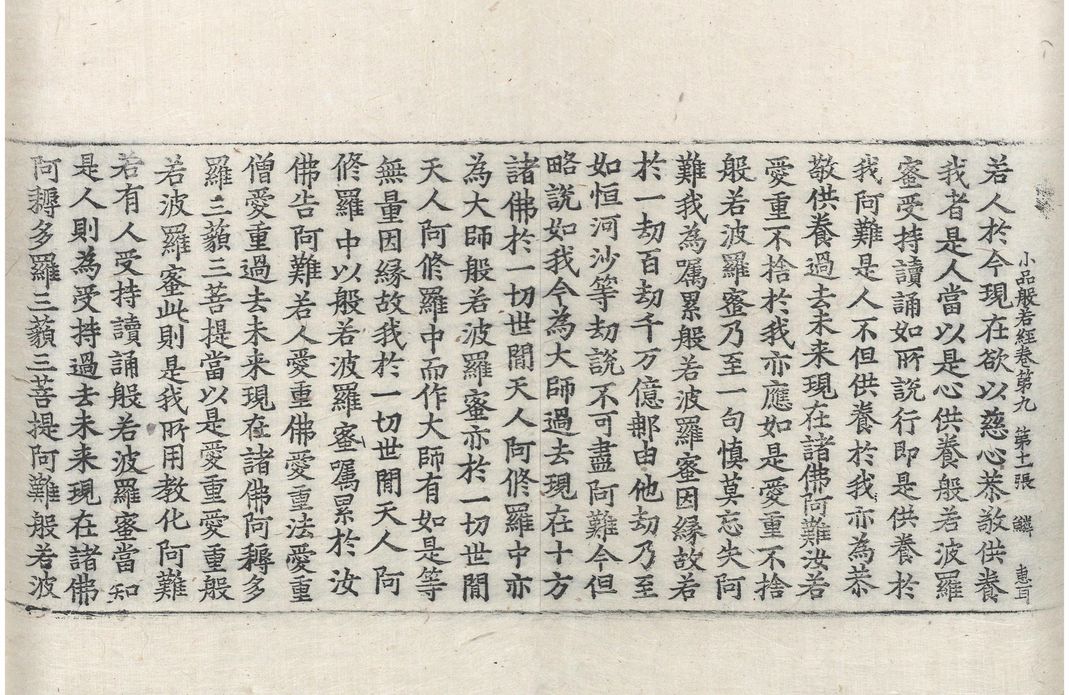 小品般若經卷第九　第十一張　鱗　惠耳
若人於今現在欲以慈心恭敬供養
我者是人當以是心供養般若波羅
蜜受持讀誦如所說行即是供養於
我阿難是人不但供養於我亦為恭
敬供養過去未来現在諸佛阿難汝若
愛重不捨於我亦應如是愛重不捨
般若波羅蜜乃至一句慎莫忘失阿
難我為囑累般若波羅蜜因緣故若
於一劫百劫千万億那由他劫乃至
如恒河沙等劫說不可盡阿難今但
略說如我今為大師過去現在十方
諸佛於一切世間天人阿修羅中亦
為大師般若波羅蜜亦於一切世間
天人阿修羅中而作大師有如是等
無量因緣故我於一切世間天人阿
修羅中以般若波羅蜜囑累於汝
佛告阿難若人愛重佛愛重法愛重
僧愛重過去未来現在諸佛阿耨多
羅三藐三菩提當以是愛重愛重般
若波羅蜜此則是我所用教化阿難
若有人受持讀誦般若波羅蜜當知
是人則為受持過去未来現在諸佛
阿耨多羅三藐三菩提阿難般若波